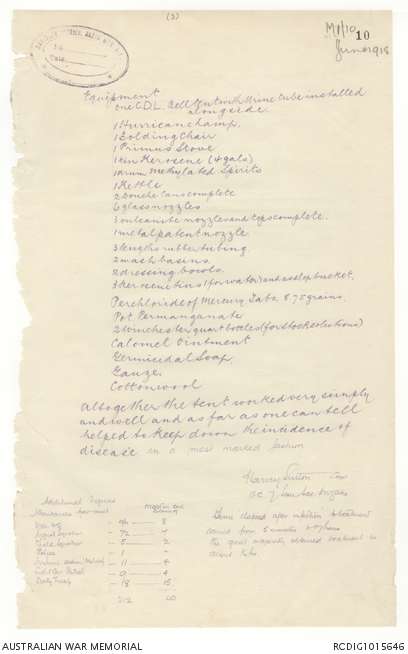 (3)
M1/10 10
June 1918
Equipment
one C.D.L. Bell Tent with urine tube installed
alongside.
1 Hurricane lamp.
1 Folding Chair
1 Primus Stove
1 tin Kerosene (4 gals)
1 drum Methylated Spirits
1 Kettle
2 Douche Cans complete
6 glass nozzles
3 vulcanite nozzles and taps complete.
1 metal patent nozzle
3 lengths rubber tubing
2 wash basins
2 dressing bowls.
3 Kerosene tins 1 for water and as slop bucket.
Perchloride of Mercury Tabs. 8.75 grains.
Pot. Permanganate
2 Winchester quart bottles (for stock solutions)
Calomel Ointment
Germicidal Soap
Gauze.
Cottonwool
Altogether the tent worked very simply
and well and as far as one can tell
helped to keep down the incidence of
disease in a most marked fashion
Harvey Sutton
O.C. 7
Additional Figures
- 72 - 4
Field Squadron - 5 - 2
Police - 1 -
- 11 - 4
- 9 - 4
- 18 - 15
212 40
Time elapsed after
varied from 5 minutes
the great majority obtained treatment in
AUSTRALIAN WAR MEMORIAL
RCDIG1015646